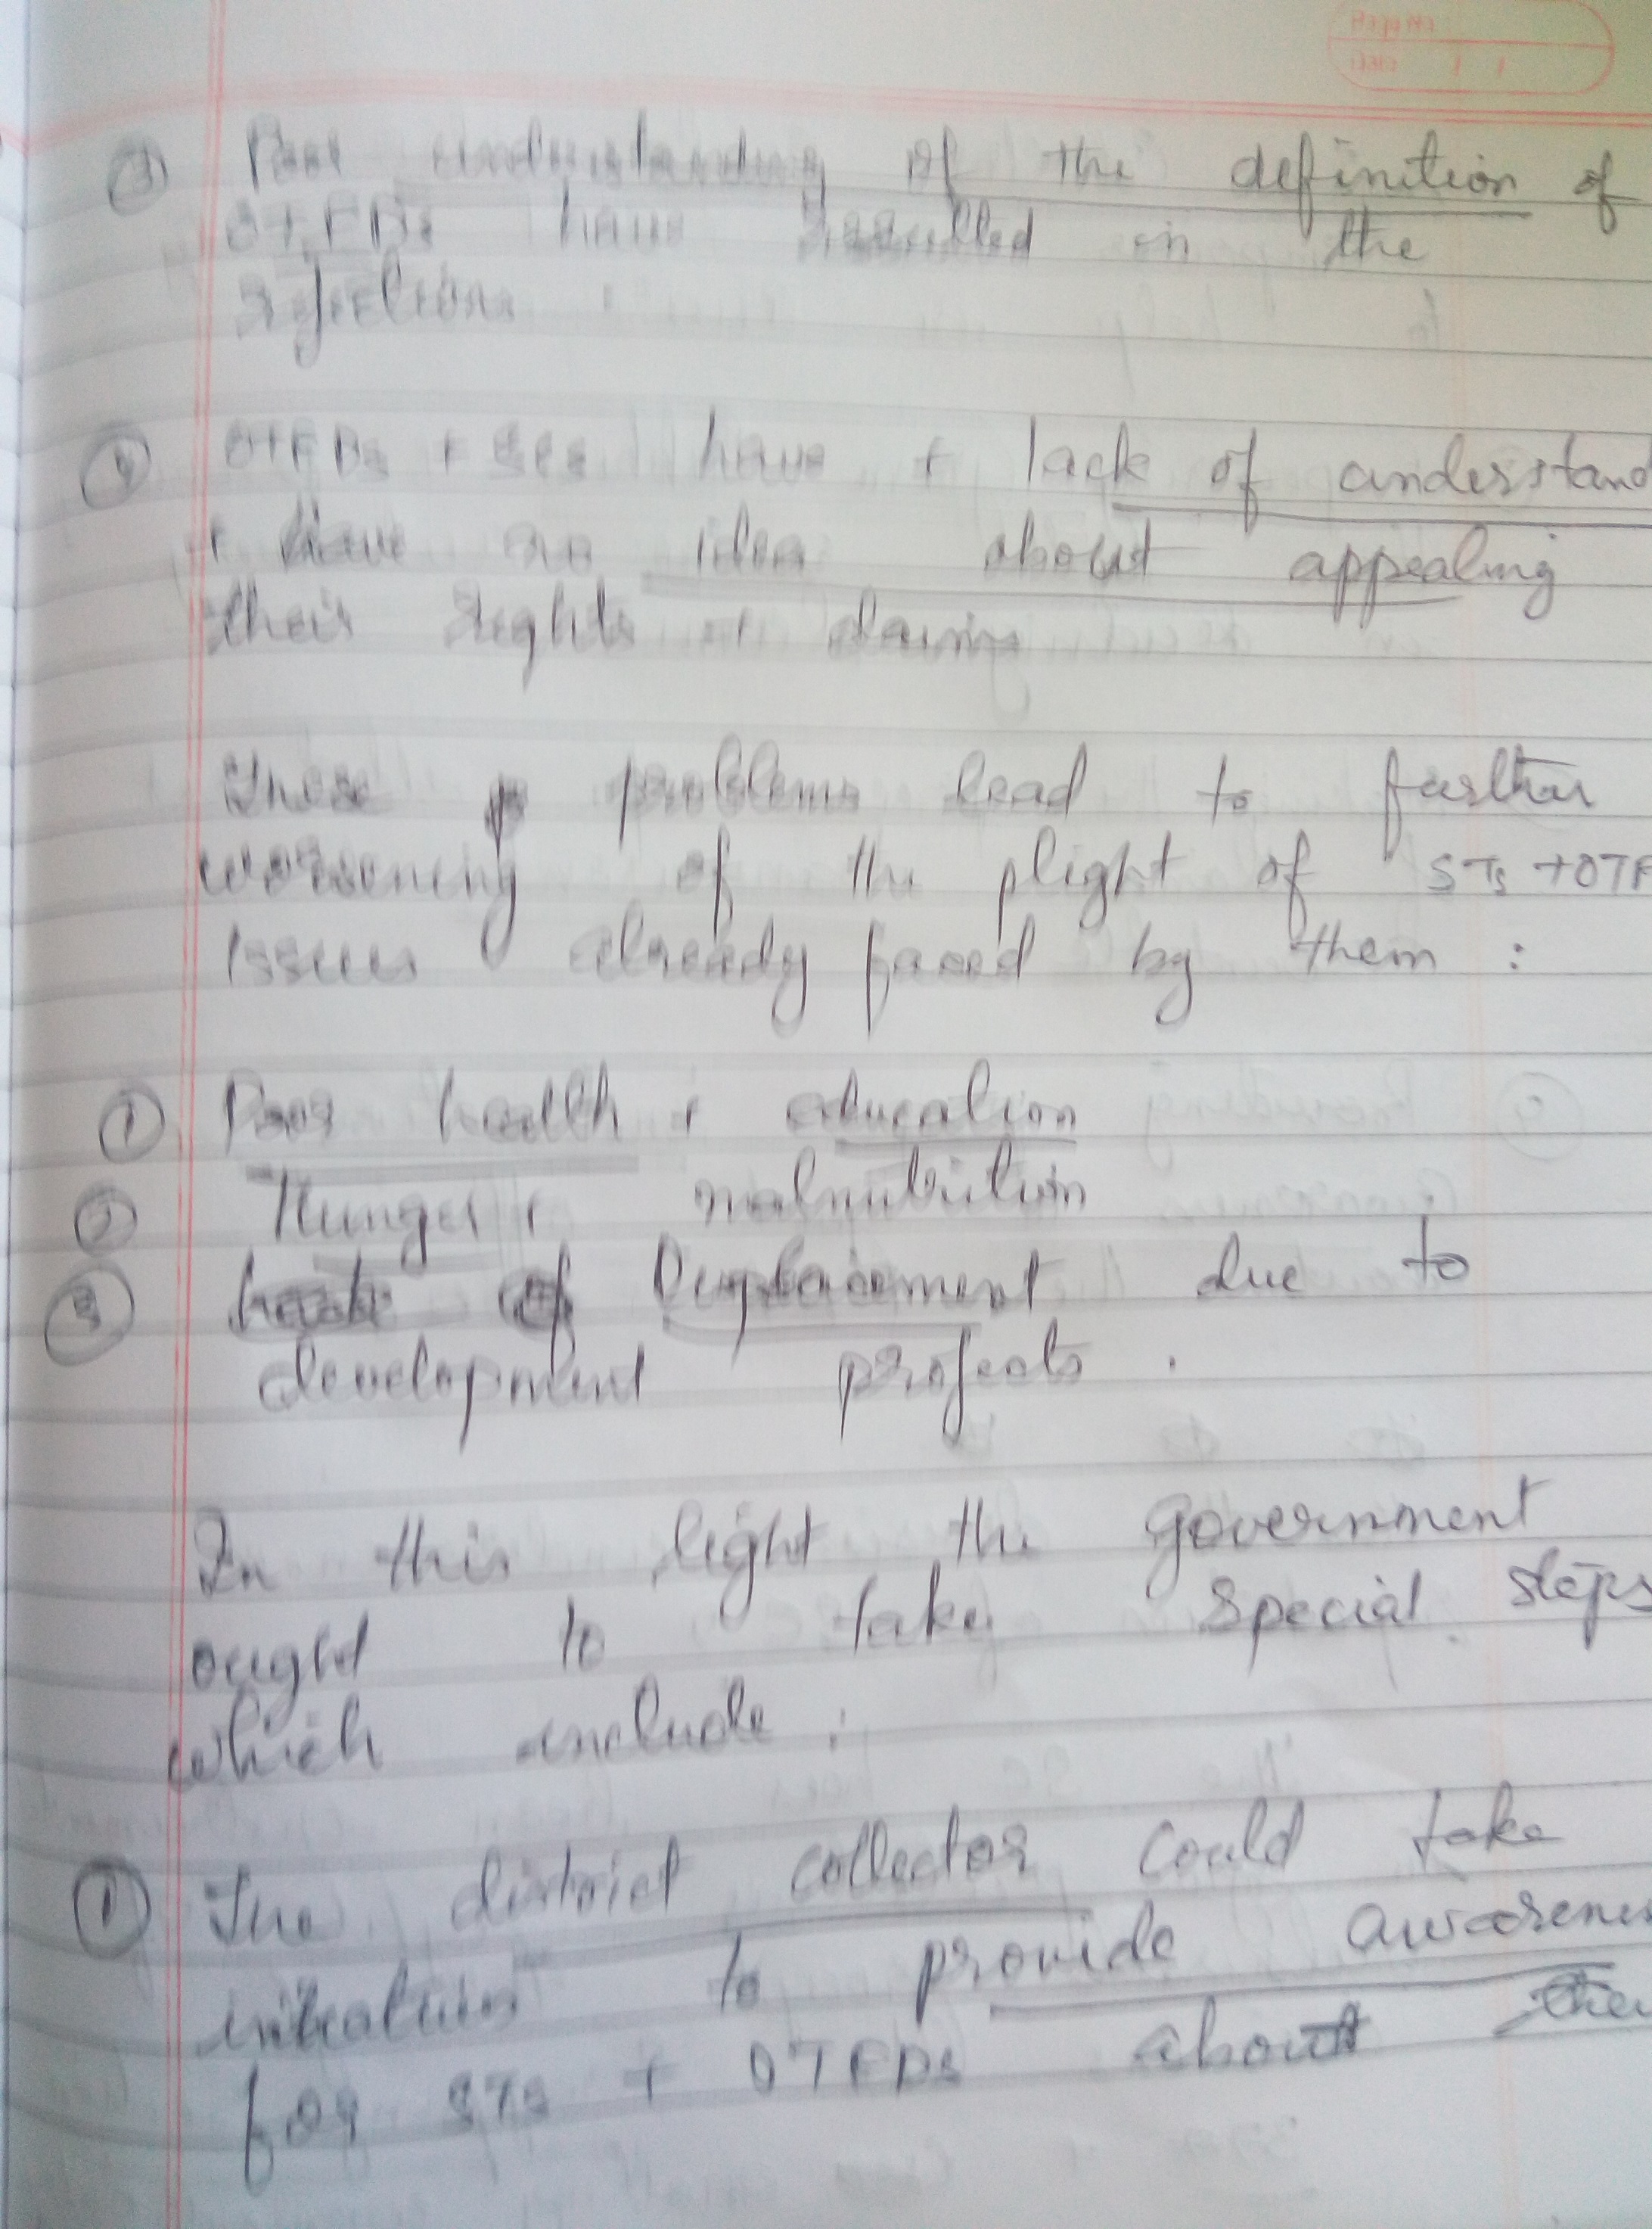 ③ Poor understanding of the definition of
OTFDs have resulted in the
rejections
④ OTFDs + STs have + lack of understand
+ have no idea about appealing
their rights + claims
These problems lead to further
worsening of the plight of STs + OTF
Issues already faced by them :
① Poor health + education
② Hunger + malnutrition
③ Displacement due to
development projects .
In this light the government
ought to take special steps
which include :
① The district collector could take
initiatives to provide awareness
for STs + OTFDs about the